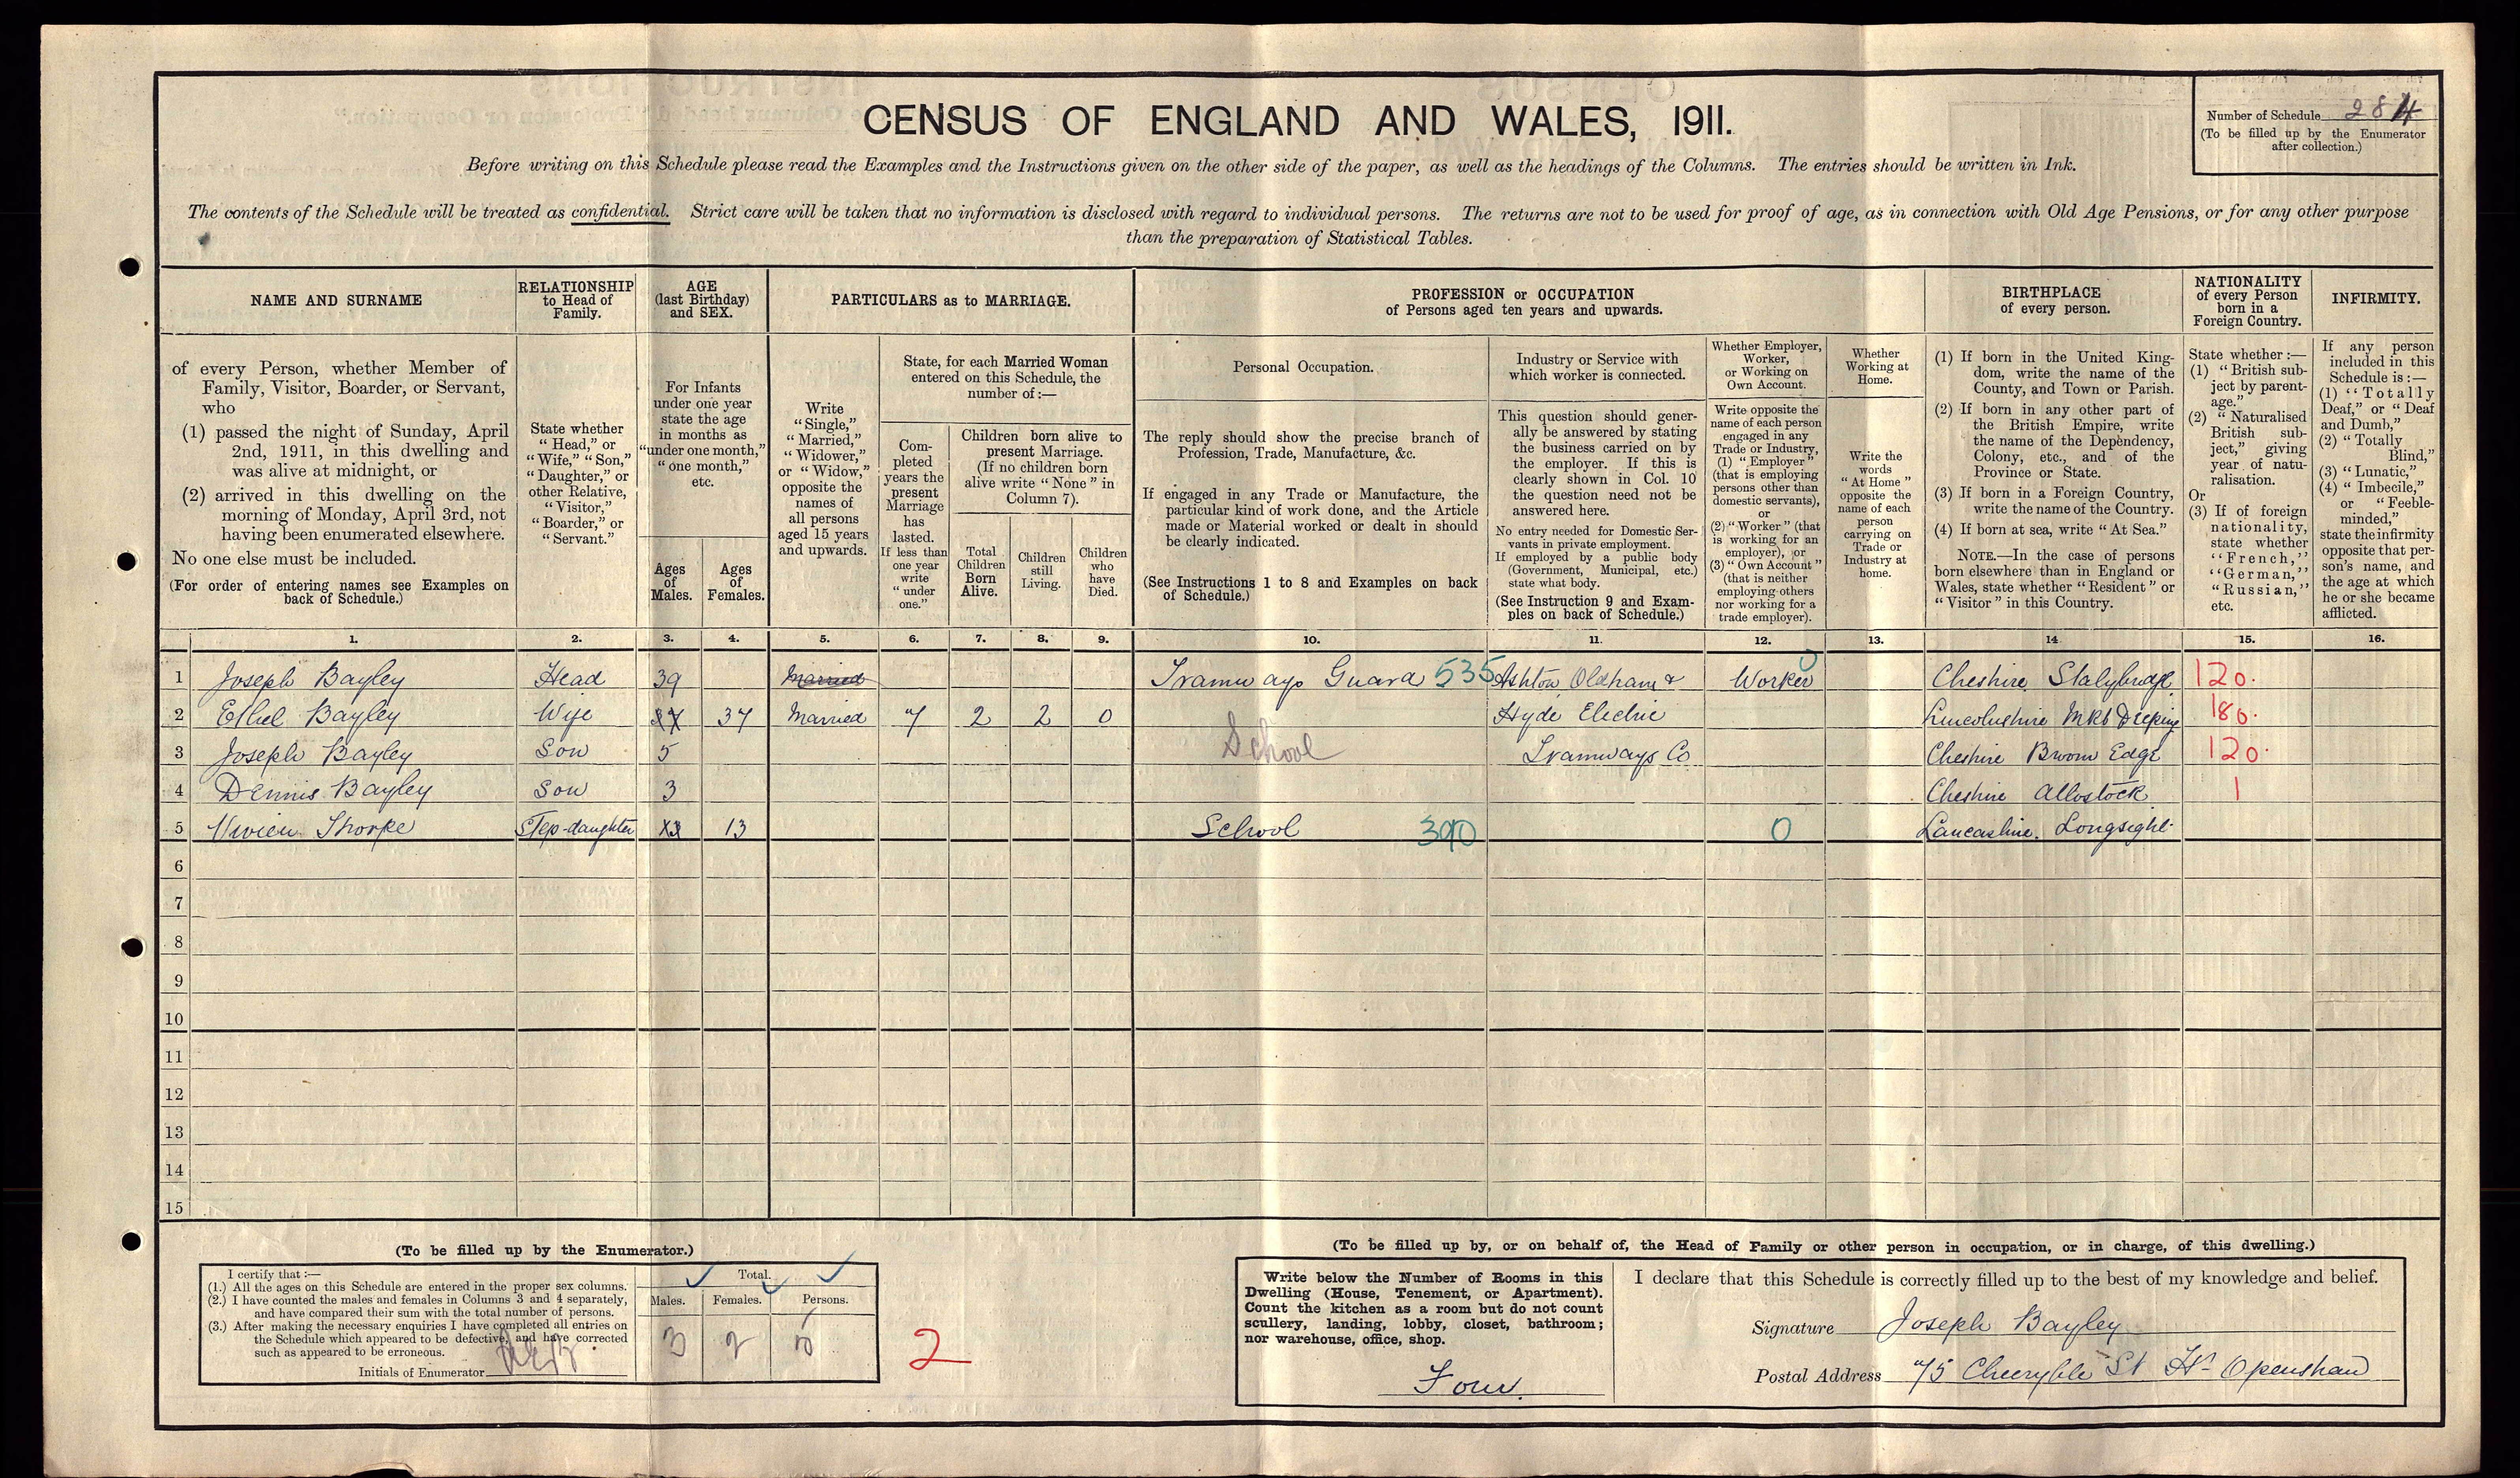 CENSUS OF ENGLAND AND WALES, 1911.
Number of Schedule 284
(To be filled up by the Enumerator
after collection.)
Before writing on this Schedule please read the Examples and the Instructions given on the other side of the paper, as well as the headings of the Columns. The entries should be written in Ink.
The contents of the Schedule will be treated as confidential. Strict care will be taken that no information is disclosed with regard to individual persons. The returns are not to be used for proof of age, as in connection with Old Age Pensions, or for any other purpose
than the preparation of Statistical Tables.
NAME AND SURNAME
of every Person, whether Member of
Family, Visitor, Boarder, or Servant,
who
(1) passed the night of Sunday, April
2nd, 1911, in this dwelling and
was alive at midnight, or
(2) arrived in this dwelling on the
morning of Monday, April 3rd, not
having been enumerated elsewhere.
No one else must be included.
(For order of entering names see Examples on
back of Schedule.)
RELATIONSHIP
to Head of
Family.
State whether
"Head," or
"Wife," "Son,"
"Daughter," or
other Relative,
"Visitor,"
"Boarder," or
"Servant."
AGE
(last Birthday)
and SEX.
For Infants
under one year
state the age
in months as
"under one month,"
"one month,"
etc.
Ages
of
Males.
Ages
of
Females.
PARTICULARS as to MARRIAGE.
Write
"Single,"
"Married,"
"Widower,"
or "Widow,"
opposite the
names of
all persons
aged 15 years
and upwards.
State, for each Married Woman
entered on this Schedule, the
number of:—
Com-
pleted
years the
present
Marriage
has
lasted.
If less than
one year
write
"under
one."
Children born alive to
present Marriage.
(If no children born
alive write "None" in
Column 7).
Total
Children
Born
Alive.
Children
still
Living.
Children
who
have
Died.
PROFESSION or OCCUPATION
of Persons aged ten years and upwards.
Personal Occupation.
The reply should show the precise branch of
Profession, Trade, Manufacture, &c.
If engaged in any Trade or Manufacture, the
particular kind of work done, and the Article
made or Material worked or dealt in should
be clearly indicated.
(See Instructions 1 to 8 and Examples on back
of Schedule.)
Industry or Service with
which worker is connected.
This question should gener-
ally be answered by stating
the business carried on by
the employer. If this is
clearly shown in Col. 10
the question need not be
answered here.
No entry needed for Domestic Ser-
vants in private employment.
If employed by a public body
(Government, Municipal, etc.)
state what body.
(See Instruction 9 and Exam-
ples on back of Schedule.)
Whether Employer,
Worker,
or Working on
Own Account.
Write opposite the
name of each person
engaged in any
Trade or Industry,
(1) "Employer"
(that is employing
persons other than
domestic servants),
or
(2) "Worker" (that
is working for an
employer), or
(3) "Own Account"
(that is neither
employing others
nor working for a
trade employer).
Whether
Working at
Home.
Write the
words
"At Home"
opposite the
name of each
person
carrying on
Trade or
Industry at
home.
BIRTHPLACE
of every person.
(1) If born in the United King-
dom, write the name of the
County, and Town or Parish.
(2) If born in any other part of
the British Empire, write
the name of the Dependency,
Colony, etc., and of the
Province or State.
(3) If born in a Foreign Country,
write the name of the Country.
(4) If born at sea, write "At Sea."
NOTE.—In the case of persons
born elsewhere than in England or
Wales, state whether "Resident" or
"Visitor" in this Country.
NATIONALITY
of every Person
born in a
Foreign Country.
State whether:—
(1) "British sub-
ject by parent-
age."
(2) "Naturalised
British sub-
ject," giving
year of natu-
ralisation.
Or
(3) If of foreign
nationality,
state whether
"French,"
"German,"
"Russian,"
etc.
INFIRMITY.
If any person
included in this
Schedule is:—
(1) "Totally
Deaf," or "Deaf
and Dumb,"
(2) "Totally
Blind,"
(3) "Lunatic,"
(4) "Imbecile,"
or "Feeble-
minded,"
state the infirmity
opposite that per-
son's name, and
the age at which
he or she became
afflicted.
1. 2. 3. 4. 5. 6. 7. 8. 9. 10. 11. 12. 13. 14. 15. 16.
1 Joseph Bayley Head 39 Married Tramways Guard 535 Ashton, Oldham & Worker 0 Cheshire Stalybridge 120.
2 Ethel Bayley Wife 37 Married 7 2 2 0 Hyde Electric Lincolnshire Mkt Deeping 180.
3 Joseph Bayley Son 5 School Tramways Co Cheshire Broom Edge 120.
4 Dennis Bayley Son 3 Cheshire Allostock 1
5 Vivien Thorpe Step-daughter 13 School 390 0 Lancashire. Longsight
6
7
8
9
10
11
12
13
14
15
(To be filled up by the Enumerator.)
I certify that:—
(1.) All the ages on this Schedule are entered in the proper sex columns.
(2.) I have counted the males and females in Columns 3 and 4 separately,
and have compared their sum with the total number of persons.
(3.) After making the necessary enquiries I have completed all entries on
the Schedule which appeared to be defective, and have corrected
such as appeared to be erroneous.
Initials of Enumerator
Total.
Males. Females. Persons.
3 2 5
2
(To be filled up by, or on behalf of, the Head of Family or other person in occupation, or in charge, of this dwelling.)
Write below the Number of Rooms in this
Dwelling (House, Tenement, or Apartment).
Count the kitchen as a room but do not count
scullery, landing, lobby, closet, bathroom;
nor warehouse, office, shop.
Four.
I declare that this Schedule is correctly filled up to the best of my knowledge and belief.
Signature Joseph Bayley
Postal Address 75 Cheeryble St Hr Openshaw